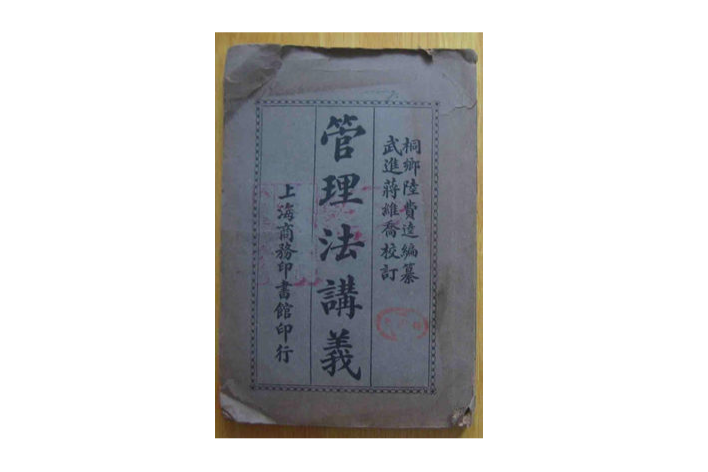 桐鄉陸費逵編纂
武進蔣維喬校訂
管理法講義
上海商務印書館印行